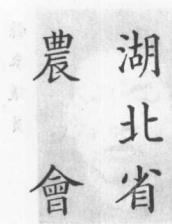 湖北省
農會